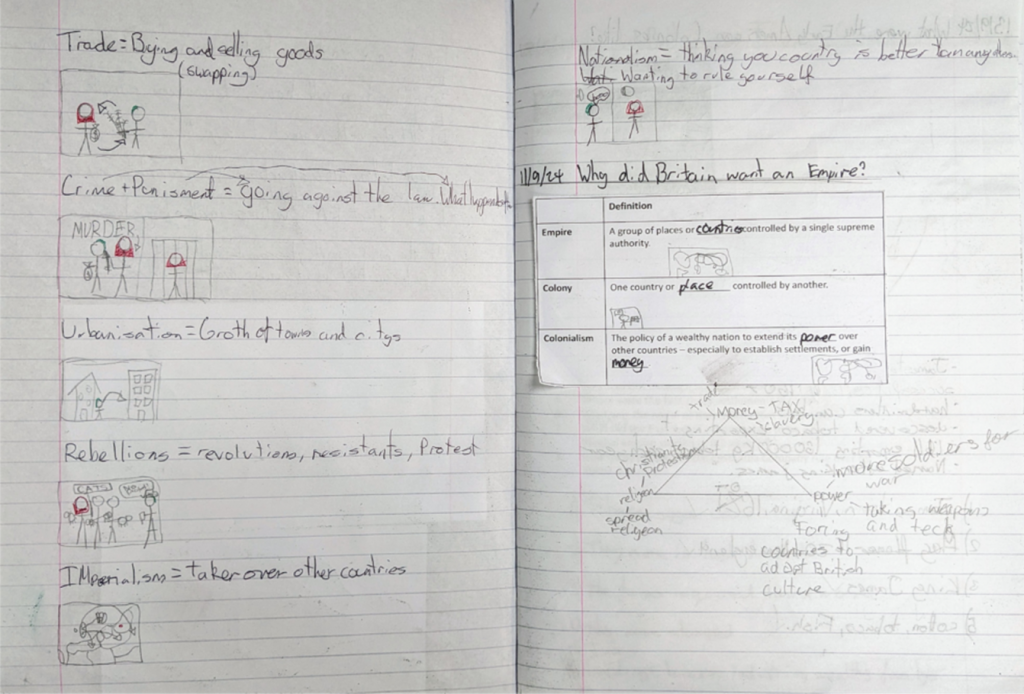 Trade = Bying and selling goods
(swapping)
Crime + Punisment = going against the law. What happend
MURDER
Urbanisation = Groth of towns and citys
Rebellions = revolutions, resistants, Protest
CATS
IMperialism = taker over other countries
Nationalism = thinking you country is better
Wanting to rule yourself
11/9/24 Why did Britain want an Empire?
Definition
Empire
A group of places or countries controlled by a single supreme
authority.
Colony
One country or place controlled by another.
Colonialism
The policy of a wealthy nation to extend its power over
other countries – especially to establish settlements, or gain
money
trade
Money - TAX
slavery
christianity
protestant
religon
spread
religeon
more soldiers for
war
power
taking weapons
and tech
Foring
countries to
adopt British
culture